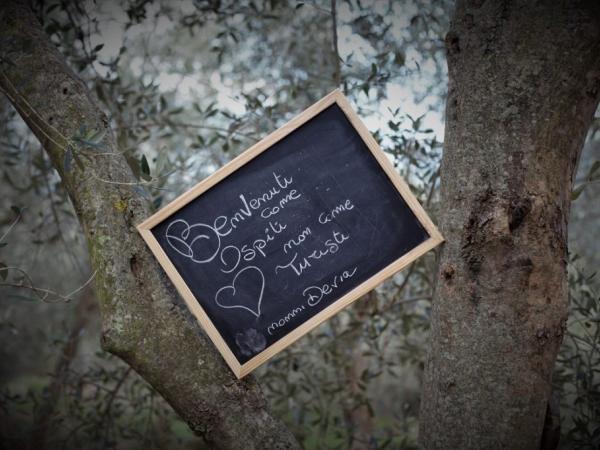 Benvenuti
Ospiti come
non come
Turisti
mommi Devia